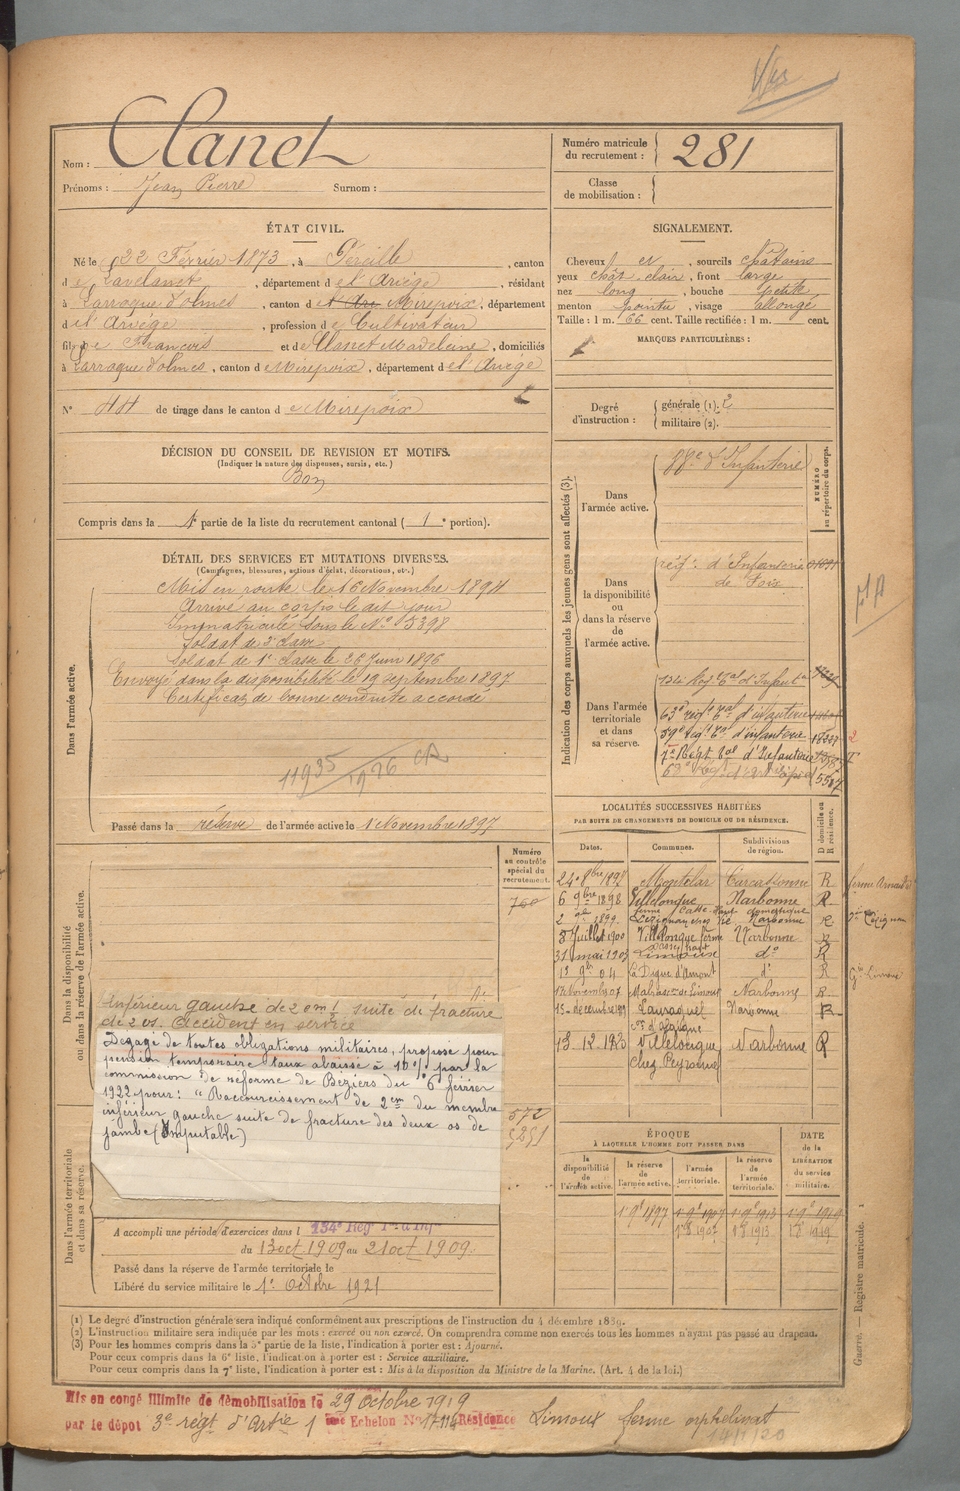 Nom : Clanet
Prénoms : Jean Pierre Surnom :
Numéro matricule du recrutement : 281
Classe de mobilisation :
ÉTAT CIVIL.
Né le 22 Février 1873, à Péreille, canton
de Lavelanet, département de l'Ariège, résidant
à Larroque d'olmes, canton de Mirepoix, département
de l'Ariège, profession de Cultivateur
fils de François et de Clanet Madeleine, domiciliés
à Larroque d'olmes, canton de Mirepoix, département de l'Ariège
N° 44 de tirage dans le canton de Mirepoix
SIGNALEMENT.
Cheveux et, sourcils châtains
yeux chât. clair, front large
nez long, bouche petite
menton pointu, visage allongé
Taille : 1 m. 66 cent. Taille rectifiée : 1 m. cent.
MARQUES PARTICULIÈRES :
Degré d'instruction : générale (1). 2
militaire (2).
DÉCISION DU CONSEIL DE REVISION ET MOTIFS.
(Indiquer la nature des dispenses, sursis, etc.)
Bon
Compris dans la 1e partie de la liste du recrutement cantonal ( 1e portion).
DÉTAIL DES SERVICES ET MUTATIONS DIVERSES.
(Campagnes, blessures, actions d'éclat, décorations, etc.)
Dans l'armée active.
Mis en route le 16 Novembre 1894
Arrivé au corps le dit jour
Immatriculé sous le N° 5398
Soldat de 2e classe
Soldat de 1e classe le 26 Juin 1896
Envoyé dans la disponibilité le 19 septembre 1897
Certificat de bonne conduite accordé
11935 1926
Passé dans la réserve de l'armée active le 1 Novembre 1897
Indication des corps auxquels les jeunes gens sont affectés (3).
NUMÉRO au répertoire du corps.
Dans l'armée active.
88e d'Infanterie
Dans la disponibilité ou dans la réserve de l'armée active.
rég. d'Infanterie
de Foix
Dans l'armée territoriale et dans sa réserve.
134 Reg Tal d'Infant
63e régt Tal d'infanterie
59e régt Tal d'infanterie 18227
7e Régt Tal d'Infanterie
5587
LOCALITÉS SUCCESSIVES HABITÉES
PAR SUITE DE CHANGEMENTS DE DOMICILE OU DE RÉSIDENCE.
Dates. Communes. Subdivisions de région. D domicile ou R résidence.
24 8bre 1897 Montclar Carcassonne R ferme Arnaud
6 9bre 1898 Villelongue Narbonne R
1899 Lézignan Narbonne R
8 Juillet 1900 Villelongue ferme Narbonne R
31 mai 1903 Limoux do R
04 La Digue d'Amont do R
17 Novembre 07 Malras Limoux Narbonne R
15 décembre Lauraguel Narbonne R
13.12.1923 Villelongue Narbonne R
chez Peyronne
Numéro au contrôle spécial du recrutement.
760
572
5251
Dans la disponibilité ou dans la réserve de l'armée active.
inférieur gauche de 2 cmt suite de fracture
de 2 os. Accident en service
Dégagé de toutes obligations militaires, proposé pour
pension temporaire taux abaissé à 10% par la
commission de réforme de Béziers du 6 février
1922 pour : "Raccourcissement de 2cm du membre
inférieur gauche suite de fracture des deux os de
jambe (Imputable)
Dans l'armée territoriale et dans sa réserve.
ÉPOQUE
À LAQUELLE L'HOMME DOIT PASSER DANS
la disponibilité de l'armée active. la réserve de l'armée active. l'armée territoriale. la réserve de l'armée territoriale.
DATE de la LIBÉRATION du service militaire.
1 9bre 1897 1 9bre 1907 1 9bre 1913 1 9bre 1919
1 8 1907 1 8 1913 1 8 1919
A accompli une période d'exercices dans l 134e Reg Tal d'Inf
du 13 oct 1909 au 21 oct 1909.
Passé dans la réserve de l'armée territoriale le
Libéré du service militaire le 1er Octobre 1921
(1) Le degré d'instruction générale sera indiqué conformément aux prescriptions de l'instruction du 4 décembre 1889.
(2) L'instruction militaire sera indiquée par les mots : exercé ou non exercé. On comprendra comme non exercés tous les hommes n'ayant pas passé au drapeau.
(3) Pour les hommes compris dans la 5e partie de la liste, l'indication à porter est : Ajourné.
Pour ceux compris dans la 6e liste, l'indication à porter est : Service auxiliaire.
Pour ceux compris dans la 7e liste, l'indication à porter est : Mis à la disposition du Ministre de la Marine. (Art. 4 de la loi.)
Guerre. — Registre matricule. 1
Mis en congé illimité de démobilisation le 29 Octobre 1919
par le dépôt 3e régt d'Artie 1 Echelon N° 17114 Résidence Limoux ferme orphelinat
14/1/20